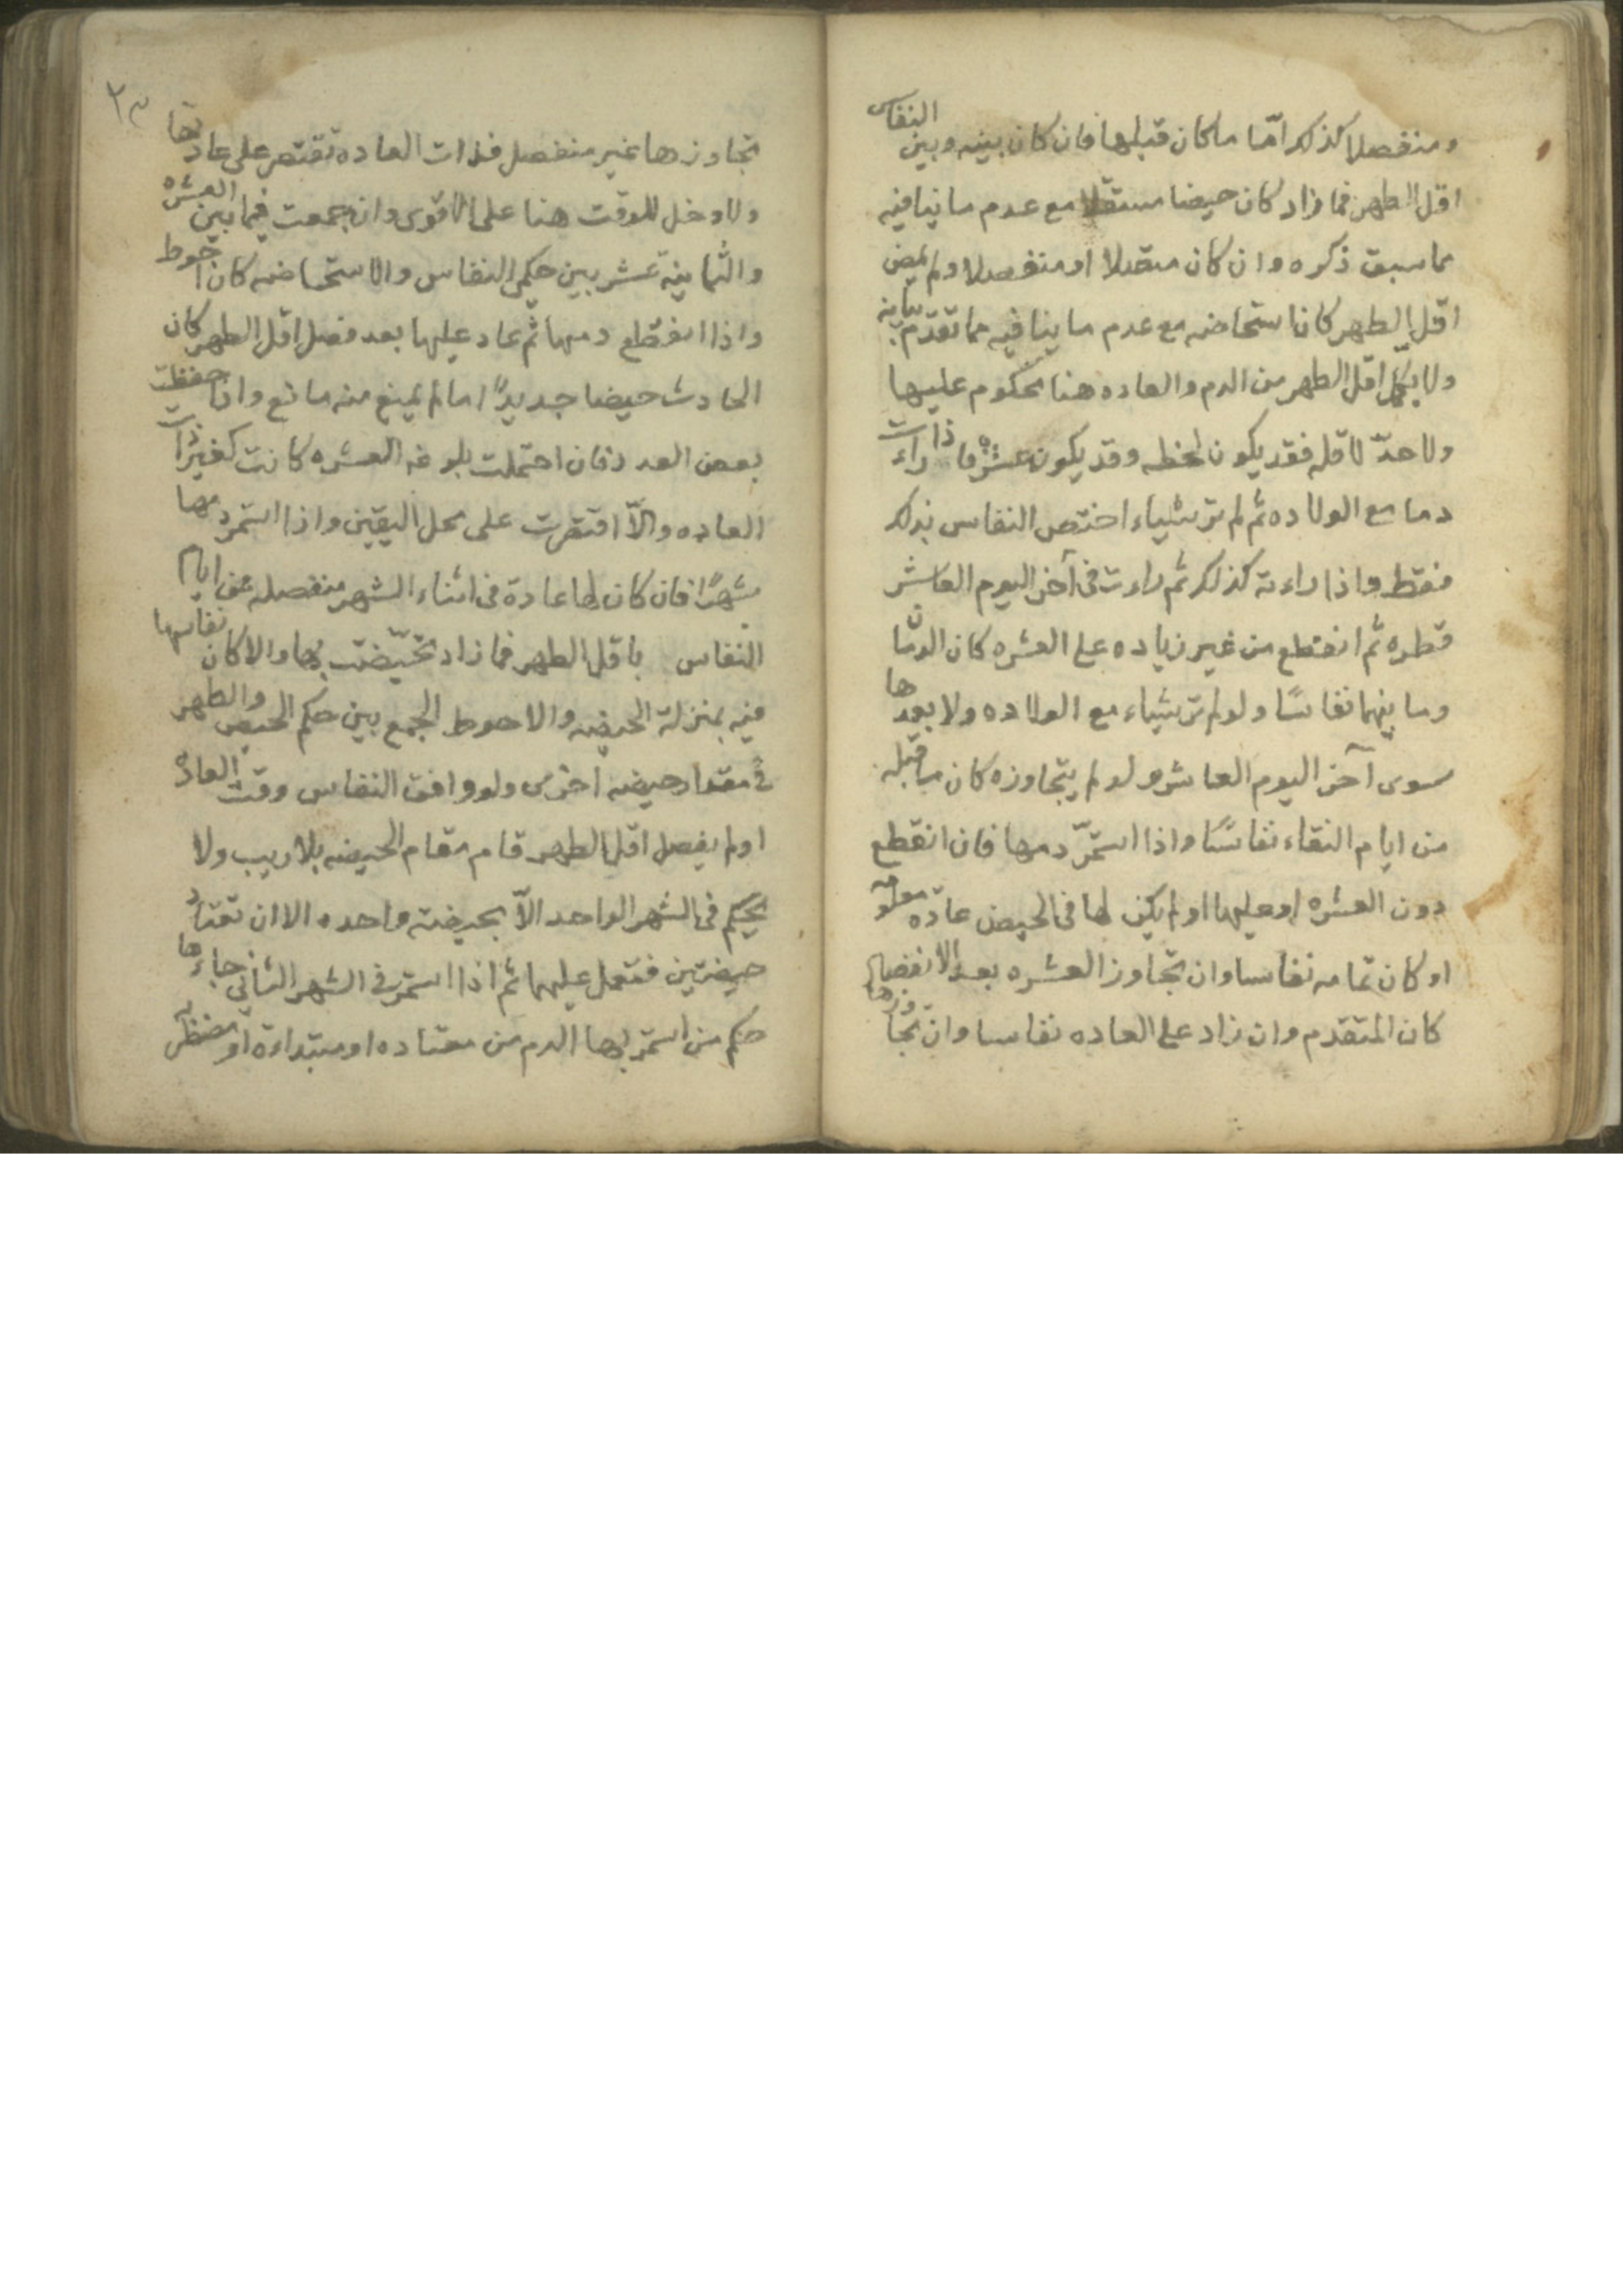 ومنفصلا كذلك امّا ما كان قبلها فان كان بينه وبين النفاس
اقل الطهر فما زاد كان حيضا مستقلا مع عدم ما ينافيه
مما سبق ذكره وان كان متصلا او منفصلا ولم يمض
اقل الطهر كان استحاضه مع عدم ما ينافيه مما تقدم
ولا يكمّل اقل الطهر من الدم والعاده هنا محكوم عليها
ولا حدّ لاقله فقد يكون لحظه وقد يكون عشره فاذا راءت
دما مع الولاده ثم لم تر شياء اختص النفاس بذلك
فقط واذا راءته كذلك ثم راءت فى آخر اليوم العاشر
قطره ثم انقطع من غير زياده على العشره كان الدمان
وما بينهما نفاسًا ولو لم تر شياء مع الولاده ولا بعدها
سوى آخر اليوم العاشر ولو لم يتجاوزه كان ما قبله
من ايام النقاء نفاسًا واذا استمرّ دمها فان انقطع
دون العشره او عليها او لم يكن لها فى الحيض عادة معلومه
او كان تمامه نفاسا وان تجاوز العشره بعد الانفصال
كان المتقدم وان زاد على العاده نفاسا وان تجاوزها
٢٣
تجاوزها غير منفصل فذات العاده تقتصر على عادتها
ولا دخل للوقت هنا على الاقوى وان جمعت فيما بين العشره
والثمانية عشر بين حكمى النفاس والاستحاضه كان احوط
واذا انقطع دمها ثم عاد عليها بعد فصل اقل الطهر كان
الحادث حيضا جديدًا ما لم يمنع منه مانع واذا حفظت
بعض العدد فان احتملت بلوغه العشره كانت كغير ذات
العاده والاّ اقتصرت على محل اليقين واذا استمر دمها
شهرًا فان كان لها عادة فى اثناء الشهر منفصله عن ايام
النفاس باقل الطهر فما زاد تحيّضت بها والا كان نفاسها
فيه بمنزلة الحيضه والاحوط الجمع بين حكم الحيض والطهر
فى مقدار حيضه اخرى ولو وافق النفاس وقت العاده
او لم يفصل اقل الطهر قام مقام الحيضه بلا ريب ولا
يحكم فى الشهر الواحد الاّ بحيضة واحده الا ان تعتاد
حيضتين فتعمل عليهما ثم اذا استمر فى الشهر الثانى جاءها
حكم من استمر بها الدم من معتاده او مبتداءة او مضطربه